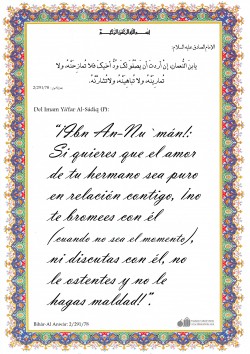 بسم الله الرحمن الرحيم
الإمام الصادق عليه السلام:
يابن النُّعمان، إن أردت أن يصفو لك ودُّ أخيك فلا تُمازحنَّه، ولا
تمارينَّه ولا تباهينَّه، ولا تشارنَّه.
2/291/78
Del Imam Ya'far Al-Sádiq (P):
“¡Ibn An-Nu´mán!:
Si quieres que el amor
de tu hermano sea puro
en relación contigo, ¡no
te bromees con él
(cuando no sea el momento),
ni discutas con él, no
le ostentes y no le
hagas maldad!”.
Bihár-Al Anwár: 2/291/78